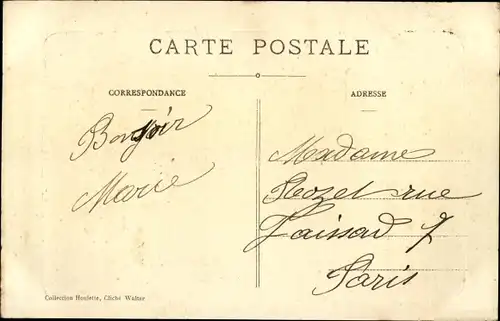 CARTE POSTALE
CORRESPONDANCE
ADRESSE
Bonsoir
Marie
Madame
Rozet rue
7
Paris
Collection Houlette, Cliché Walter